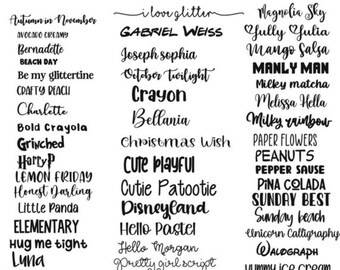 Autumn in November
AVOCADO CREAMY
Bernadette
BEACH DAY
Be my glittertine
CRAFTY BEACH
Charlotte
Bold Crayola
Grinched
HarryP
LEMON FRIDAY
Honest Darling
Little Panda
ELEMENTARY
Hug me tight
Luna
i love glitter
GABRIEL WEISS
Joseph sophia
October Twilight
Crayon
Bellania
Christmas Wish
Cute Playful
Cutie Patootie
Disneyland
Hello Pastel
Hello Morgan
Pretty girl script
Magnolia Sky
Fully Julia
Mango Salsa
MANLY MAN
Milky matcha
Melissa Hella
Milky rainbow
PAPER FLOWERS
PEANUTS
PEPPER SAUSE
PINA COLADA
SUNDAY BEST
Sunday beach
Unicorn Calligraphy
WALOGRAPH
yummy ice cream